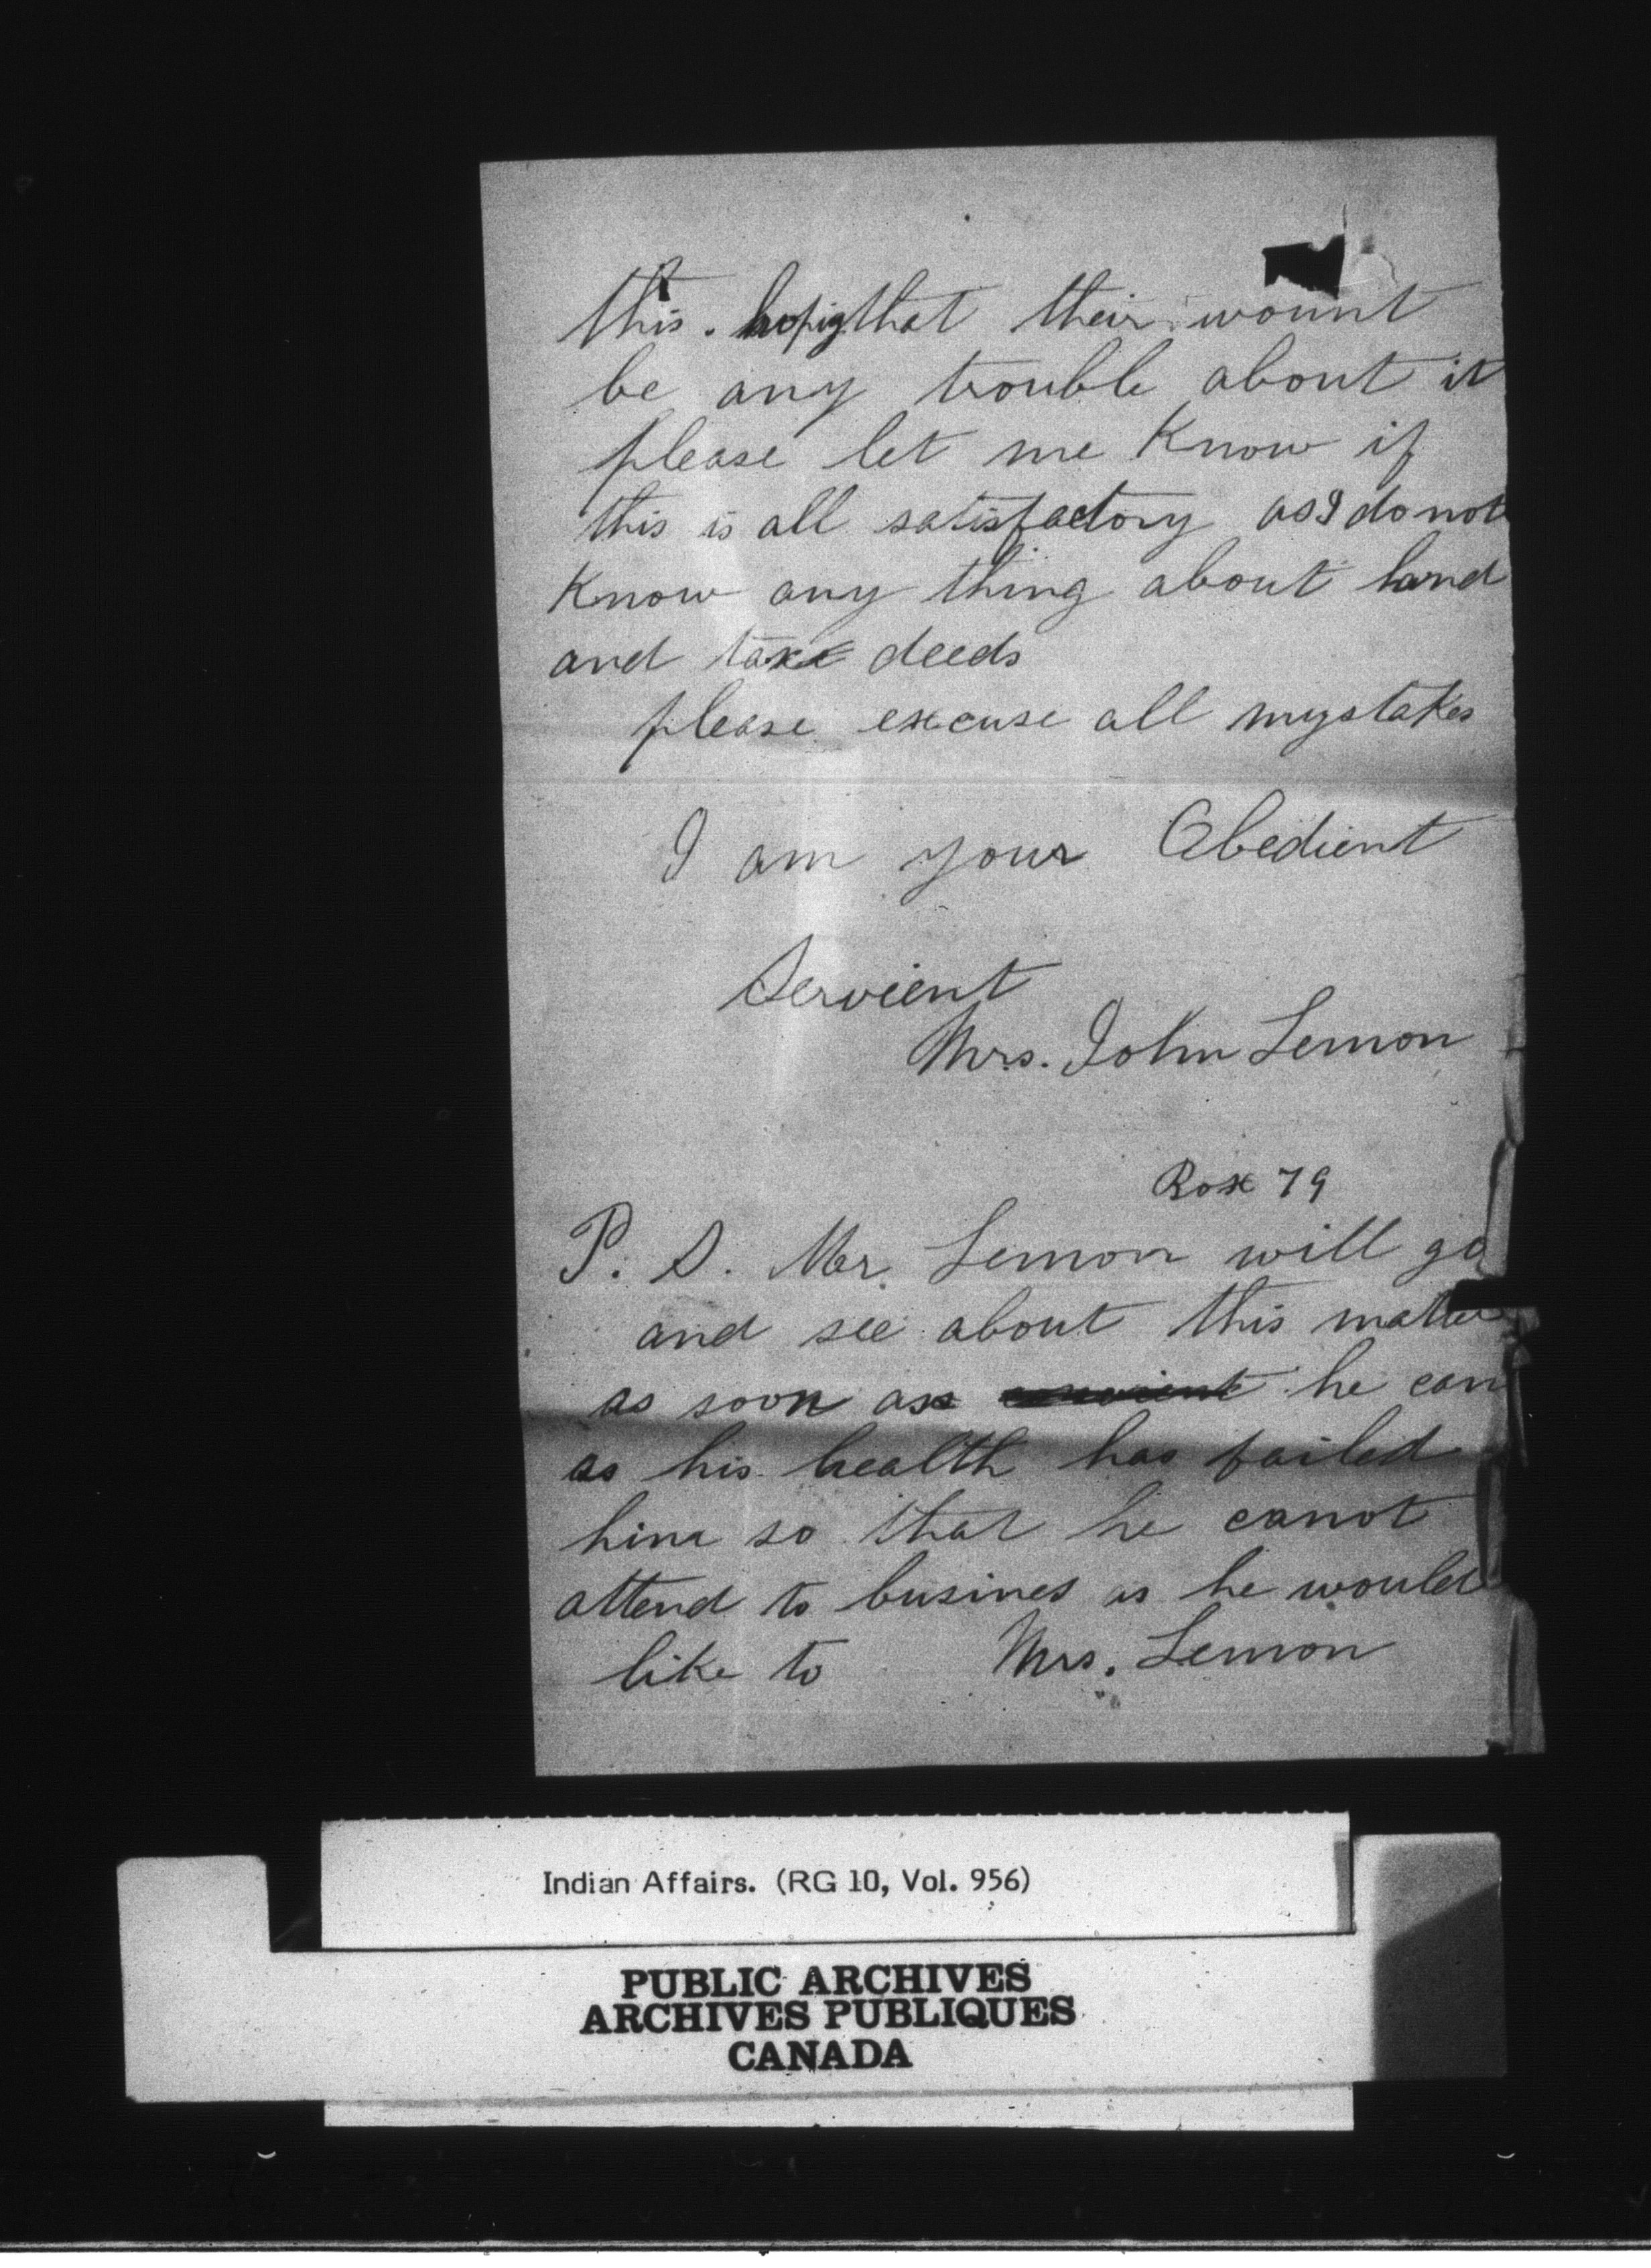 this. hopig that their wount
be any trouble about it
please let me Know if
this is all satisfactory as I do not
Know any thing about land
and tax deeds
please excuse all mystakes
I am your Obedient
Servient
Mrs. John Lemon
Box 79
P. S. Mr. Lemon will go
and see about this matter
as soon as he can
as his health has failed
him so that he canot
attend to busines as he would
like to Mrs. Lemon
Indian Affairs. (RG 10, Vol. 956)
PUBLIC ARCHIVES
ARCHIVES PUBLIQUES
CANADA